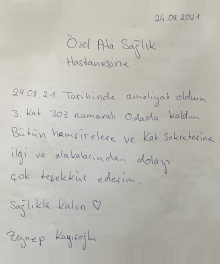 24.08.2021
Özel Ata Sağlık
Hastanesine
24.08.21 Tarihinde ameliyat oldum
3. kat 303 numaralı Odada kaldım
Bütün hemşirelere ve Kat Sekreterine
ilgi ve alakalarından dolayı
çok teşekkür ederim.
Sağlıkla kalın ♡
Zeynep